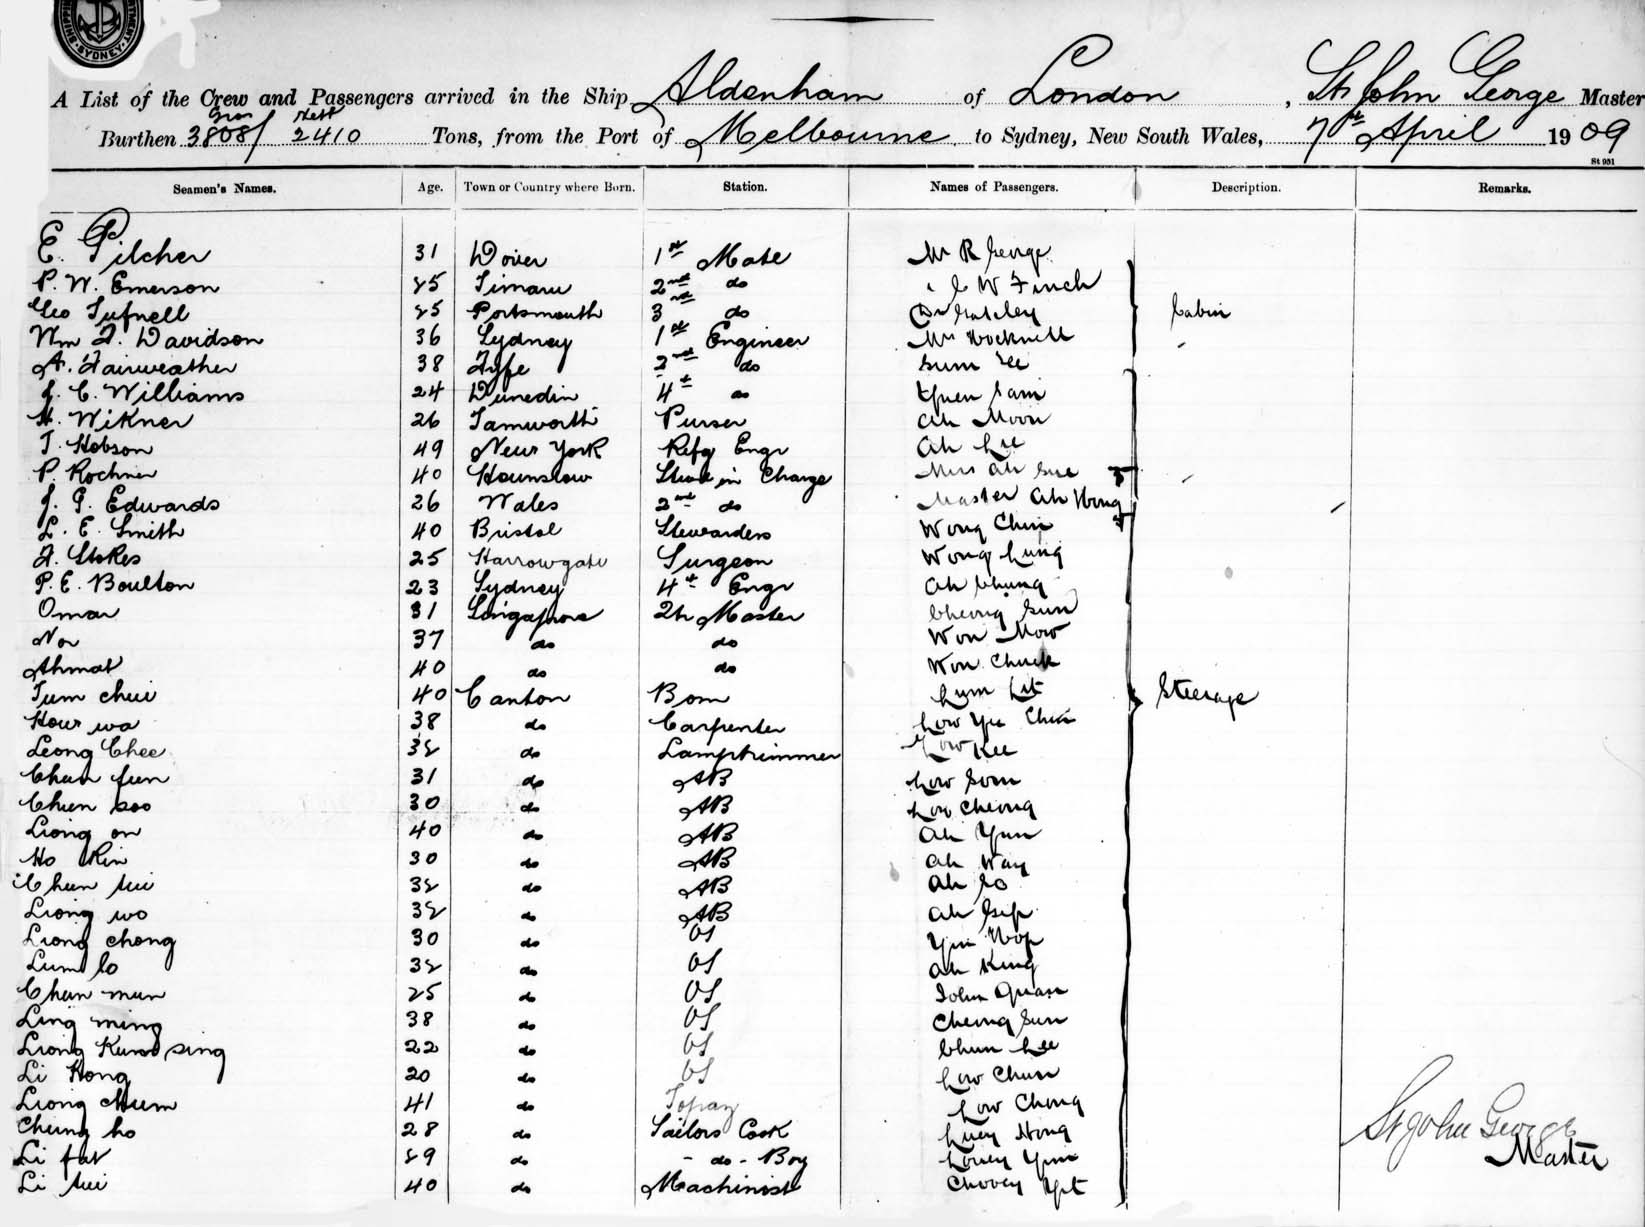 SYDNEY
A List of the Crew and Passengers arrived in the Ship Aldenham of London, St John George Master
Gross Nett
Burthen 3808/ 2410 Tons, from the Port of Melbourne to Sydney, New South Wales, 7th April 1909
St 951
Seamen's Names. Age. Town or Country where Born. Station. Names of Passengers. Description. Remarks.
E. Pilcher 31 Dover 1st Mate Mr R George
P. W. Emerson 25 Timaru 2nd do C W Finch
Geo Tufnell 25 Portsmouth 3rd do Dr Oakley Cabin
Wm F. Davidson 36 Sydney 1st Engineer Mr
A. Fairweather 38 Fyfe 2nd do Sum Lee
J. C. Williams 24 Dunedin 4th do Yuen Sam
H. Wikner 26 Tamworth Purser Ah Moon
T. Hobson 49 New York Refg Engr Ah Lee
P. Rochner 40 Hounslow Stwd in Charge Miss Ah Gue
J. G. Edwards 26 Wales 2nd do Master Ah Wong
L. E. Smith 40 Bristol Stewardess Wong Chin
F. Stokes 25 Harrowgate Surgeon Wong Lung
P. E. Boulton 23 Sydney 4th Engr Ah Chung
Omar 31 Singapore Qr Master Cheong Sun
Nor 37 do do Won Mow
Ahmat 40 do do Won Chuck
Tum chui 40 Canton Bosn Lum Lit Steerage
How wa 38 do Carpenter Low Yu Chin
Leong Chee 32 do Lamptrimmer Low Kee
Chun fun 31 do AB Low Som
Chun soo 30 do AB Low Cheong
Liong on 40 do AB Ah Yun
Ho Kin 30 do AB Ah Way
Chun sui 32 do AB Ah So
Liong wo 32 do AB Ah Gip
Liong chong 30 do OS Yin Wop
Lum lo 32 do OS Ah King
Chun mun 25 do OS John Quan
Ling ming 38 do OS Cheong Sun
Liong Kum sing 22 do OS Chun Lee
Li Hong 20 do OS Low Chun
Liong chum 41 do Topaz Low Chong
Chung ho 28 do Sailors Cook Luey Hong
Li fat 29 do - do - Boy Louey Yum
Li sui 40 do Machinist Chooey Yet
St John George
Master